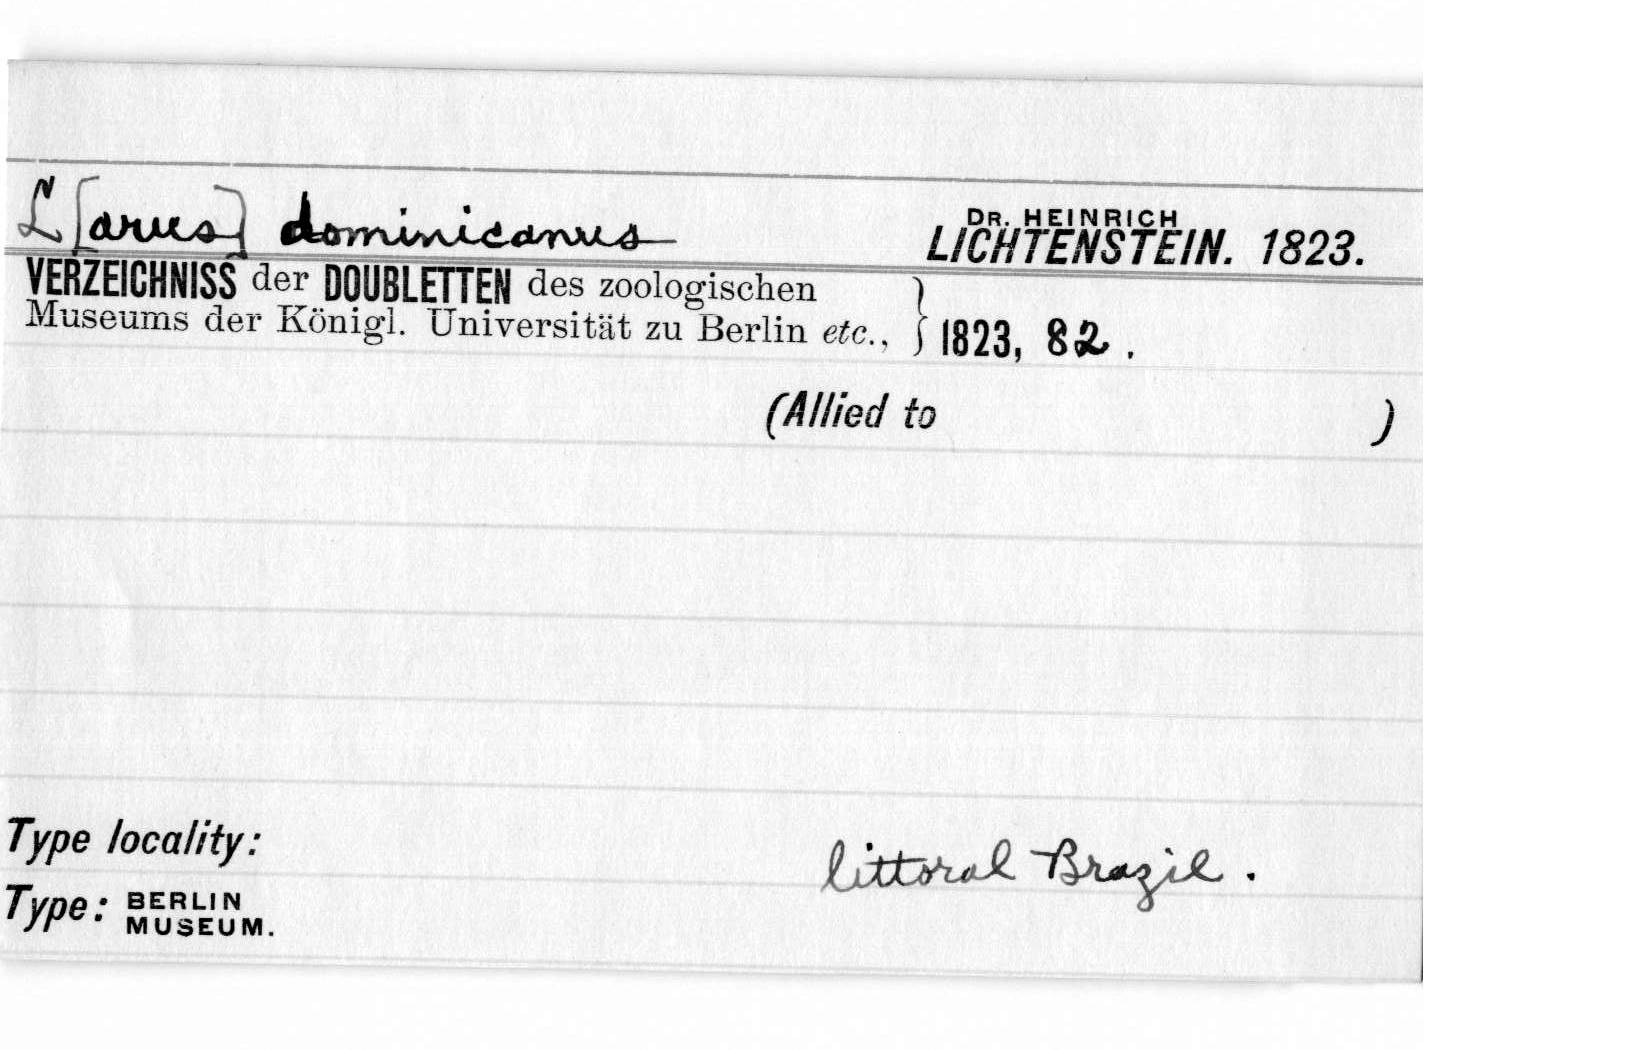 L[arus] dominicanus
DR. HEINRICH
LICHTENSTEIN. 1823.
VERZEICHNISS der DOUBLETTEN des zoologischen
Museums der Königl. Universität zu Berlin etc., } 1823, 82.
(Allied to )
Type locality:
littoral Brazil.
Type: BERLIN
MUSEUM.